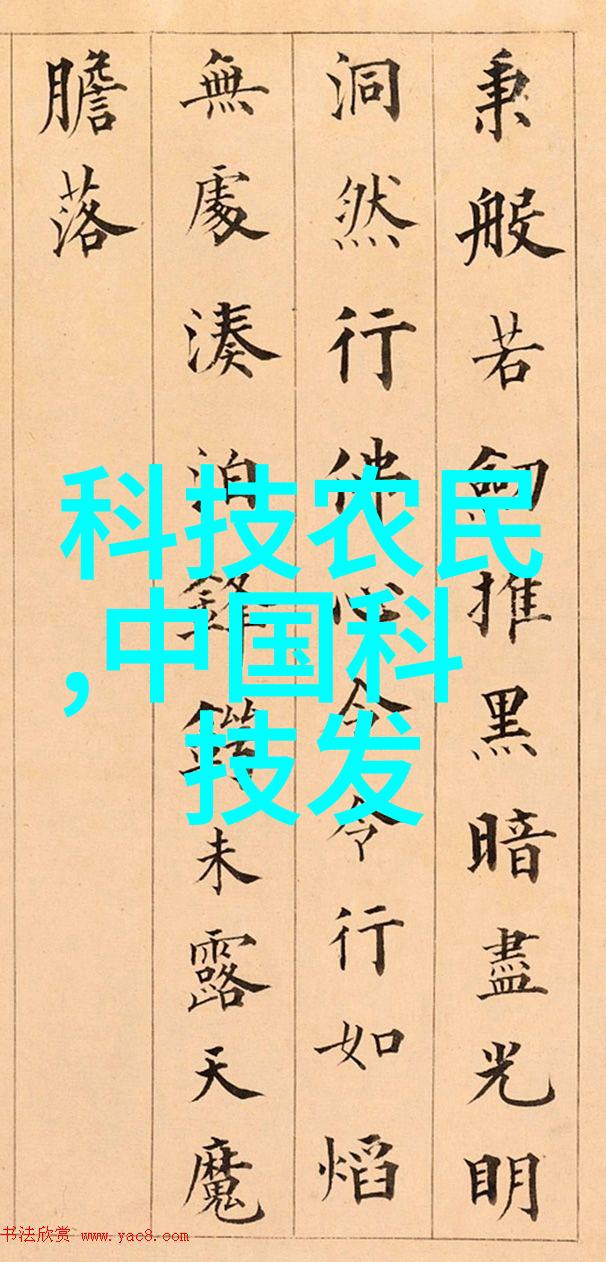 秉般若劒推黑暗盡光明
洞然行佛心令令行如熖
無處湊泊鋒鋩未露天魔
膽落
科技农民
,中国科
技发
书法欣赏 www.yac8.com